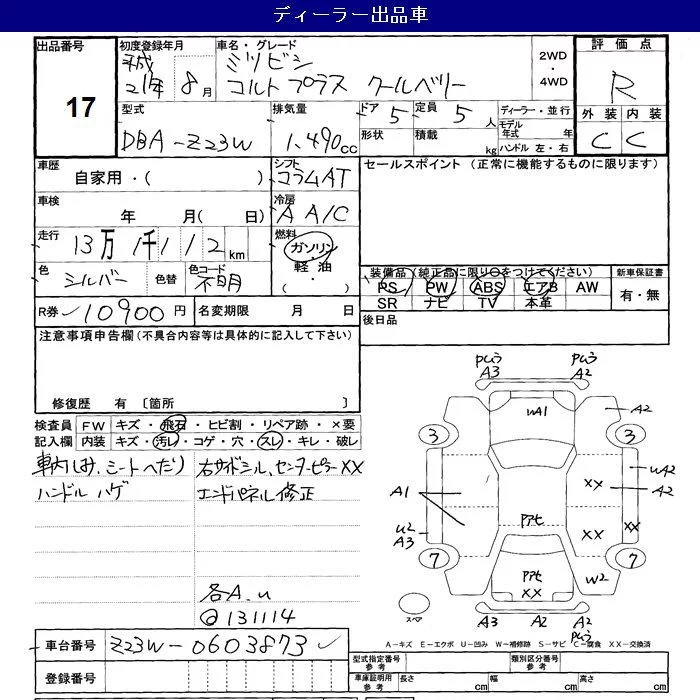 ディーラー出品車
出品番号
17
初度登録年月
平成
21年 8月
車名・グレード
ミツビシ
コルトプラス クールベリー
2WD
・
4WD
評価点
R
外装 内装
C C
型式
DBA-Z23W
排気量
1,490cc
ドア 5
定員 5人
形状
積載 kg
ディーラー・並行
モデル年式 年
ハンドル 左・右
車歴
自家用・( )
シフト
コラムAT
セールスポイント (正常に機能するものに限ります)
車検
年 月( 日)
冷房
A A/C
走行
13万1千112km
燃料
ガソリン
軽油
( ・ )
色
シルバー
色替
色コード
不明
装備品(純正品に限り○をつけてください)
PS PW ABS エアB AW
SR ナビ TV 本革
新車保証書
有・無
R券 10900円
名変期限 月 日
後日品
注意事項申告欄(不具合内容等は具体的に記入して下さい)
修復歴 有 〔箇所 〕
検査員 FW キズ・飛石・ヒビ割・リペア跡・×要
記入欄 内装 キズ・汚レ・コゲ・穴・スレ・キレ・破レ
車内しみ、シートへたり
ハンドルハゲ
右サイドシル、センターピラーXX
エンドパネル修正
各A、u
@131114
PUう PUう
A3 A2
UA1 A2
3 3
UA2
XX A2
A1
U2 PアセXX XX
A3
7 7
Pアセ W2
XX
スペア
A3 A2 A2
PUう
A-キズ E-エクボ U-凹み W-補修跡 S-サビ C-腐食 XX-交換済
車台番号 Z23W-0603873
登録番号
型式指定番号
参考
類別区分番号
参考
車庫証明用
参考
長さ cm 幅 cm 高さ cm